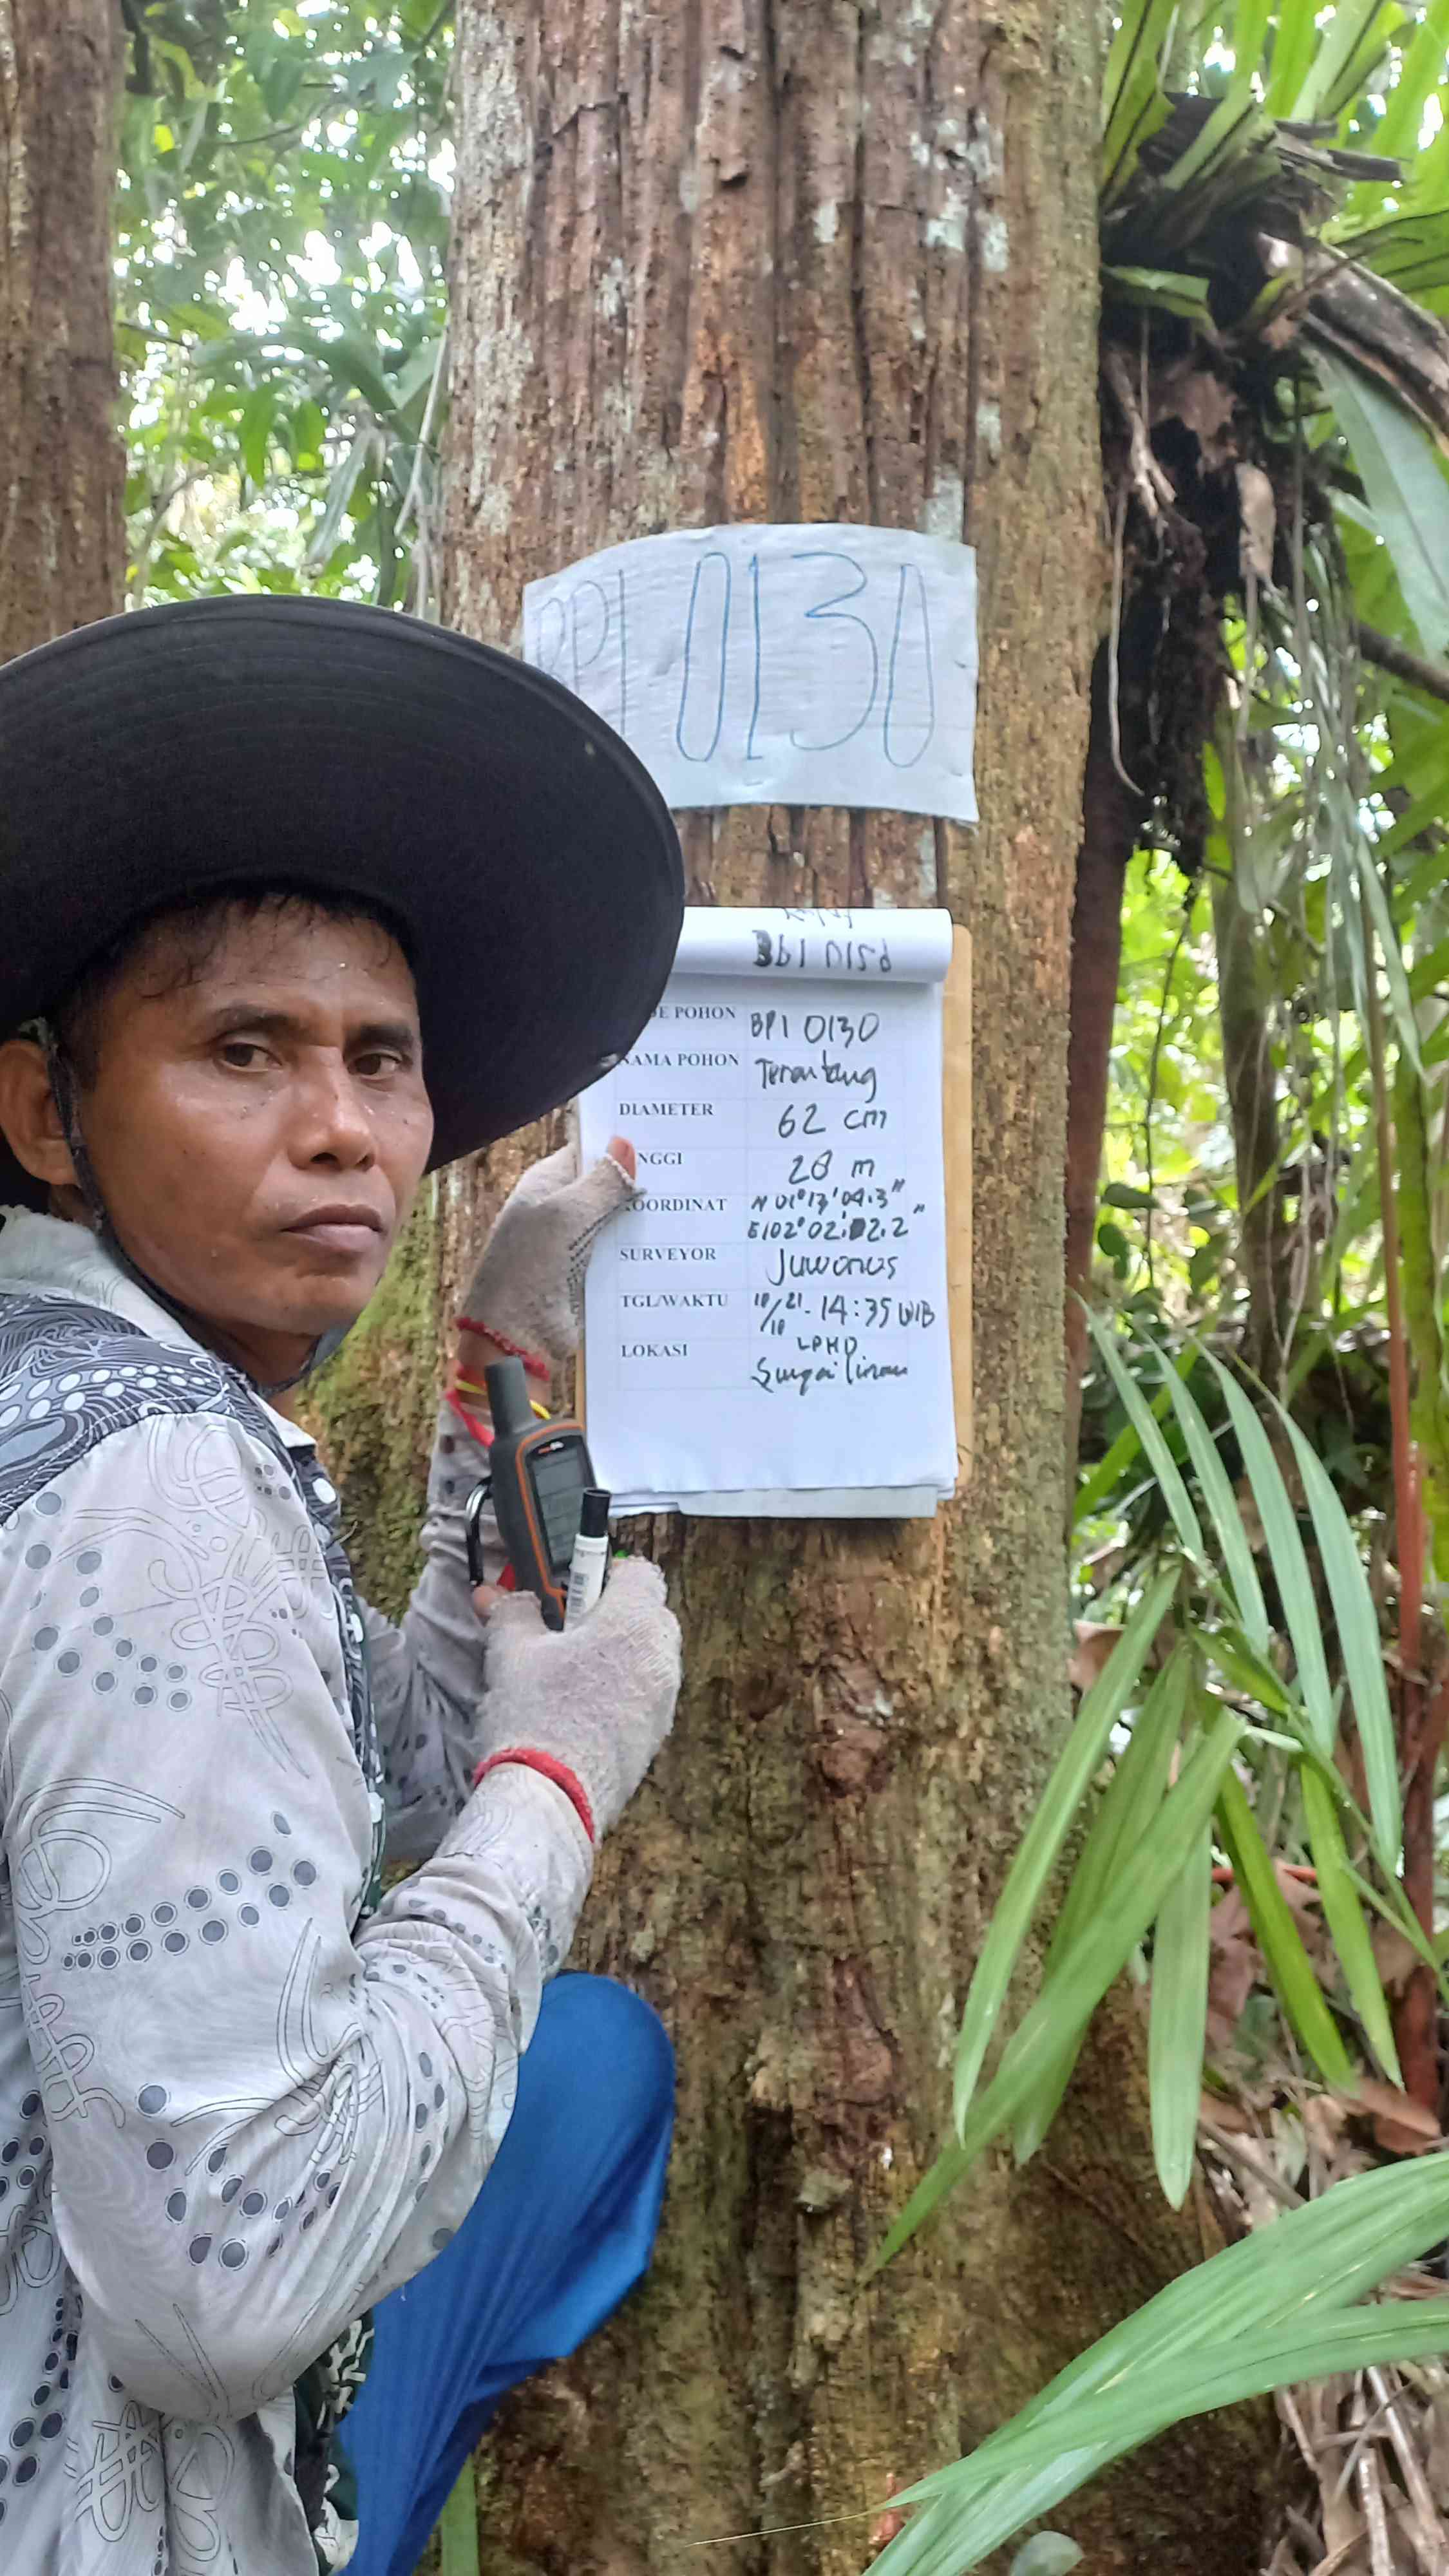 BP1 0130
KODE POHON BP1 0130
NAMA POHON Terentang
DIAMETER 62 cm
TINGGI 28 m
KOORDINAT N 01° 13' 04.3"
E 102° 02' 2.2"
SURVEYOR Juwanas
TGL/WAKTU 18/10/21 - 14:35 WIB
LOKASI LPHD
Sungai linau